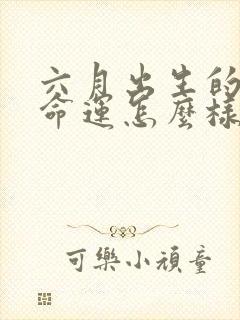 六月出生的
命運怎麼樣
可樂小頑童